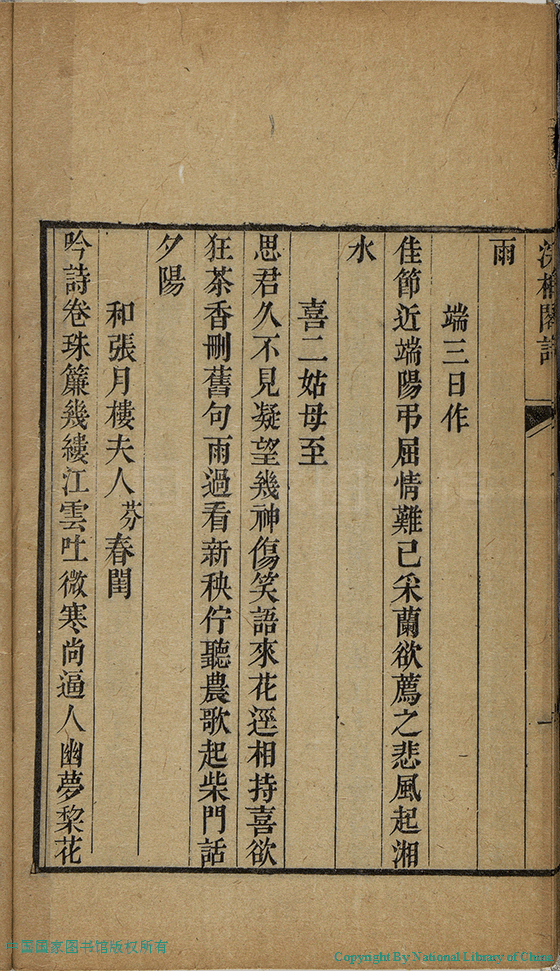 雨
端三日作
佳節近端陽弔屈情難已采蘭欲薦之悲風起湘
水
喜二姑母至
思君久不見凝望幾神傷笑語來花逕相持喜欲
狂茶香刪舊句雨過看新秧佇聽農歌起柴門話
夕陽
和張月樓夫人芬春閨
吟詩卷珠簾幾縷江雲吐微寒尚逼人幽夢棃花
中国国家图书馆版权所有
Copyright By National Library of China